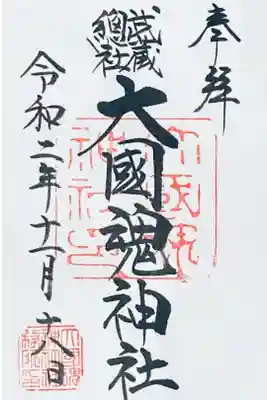 奉拝
武蔵
總社
大國魂神社
令和二年十一月十八日